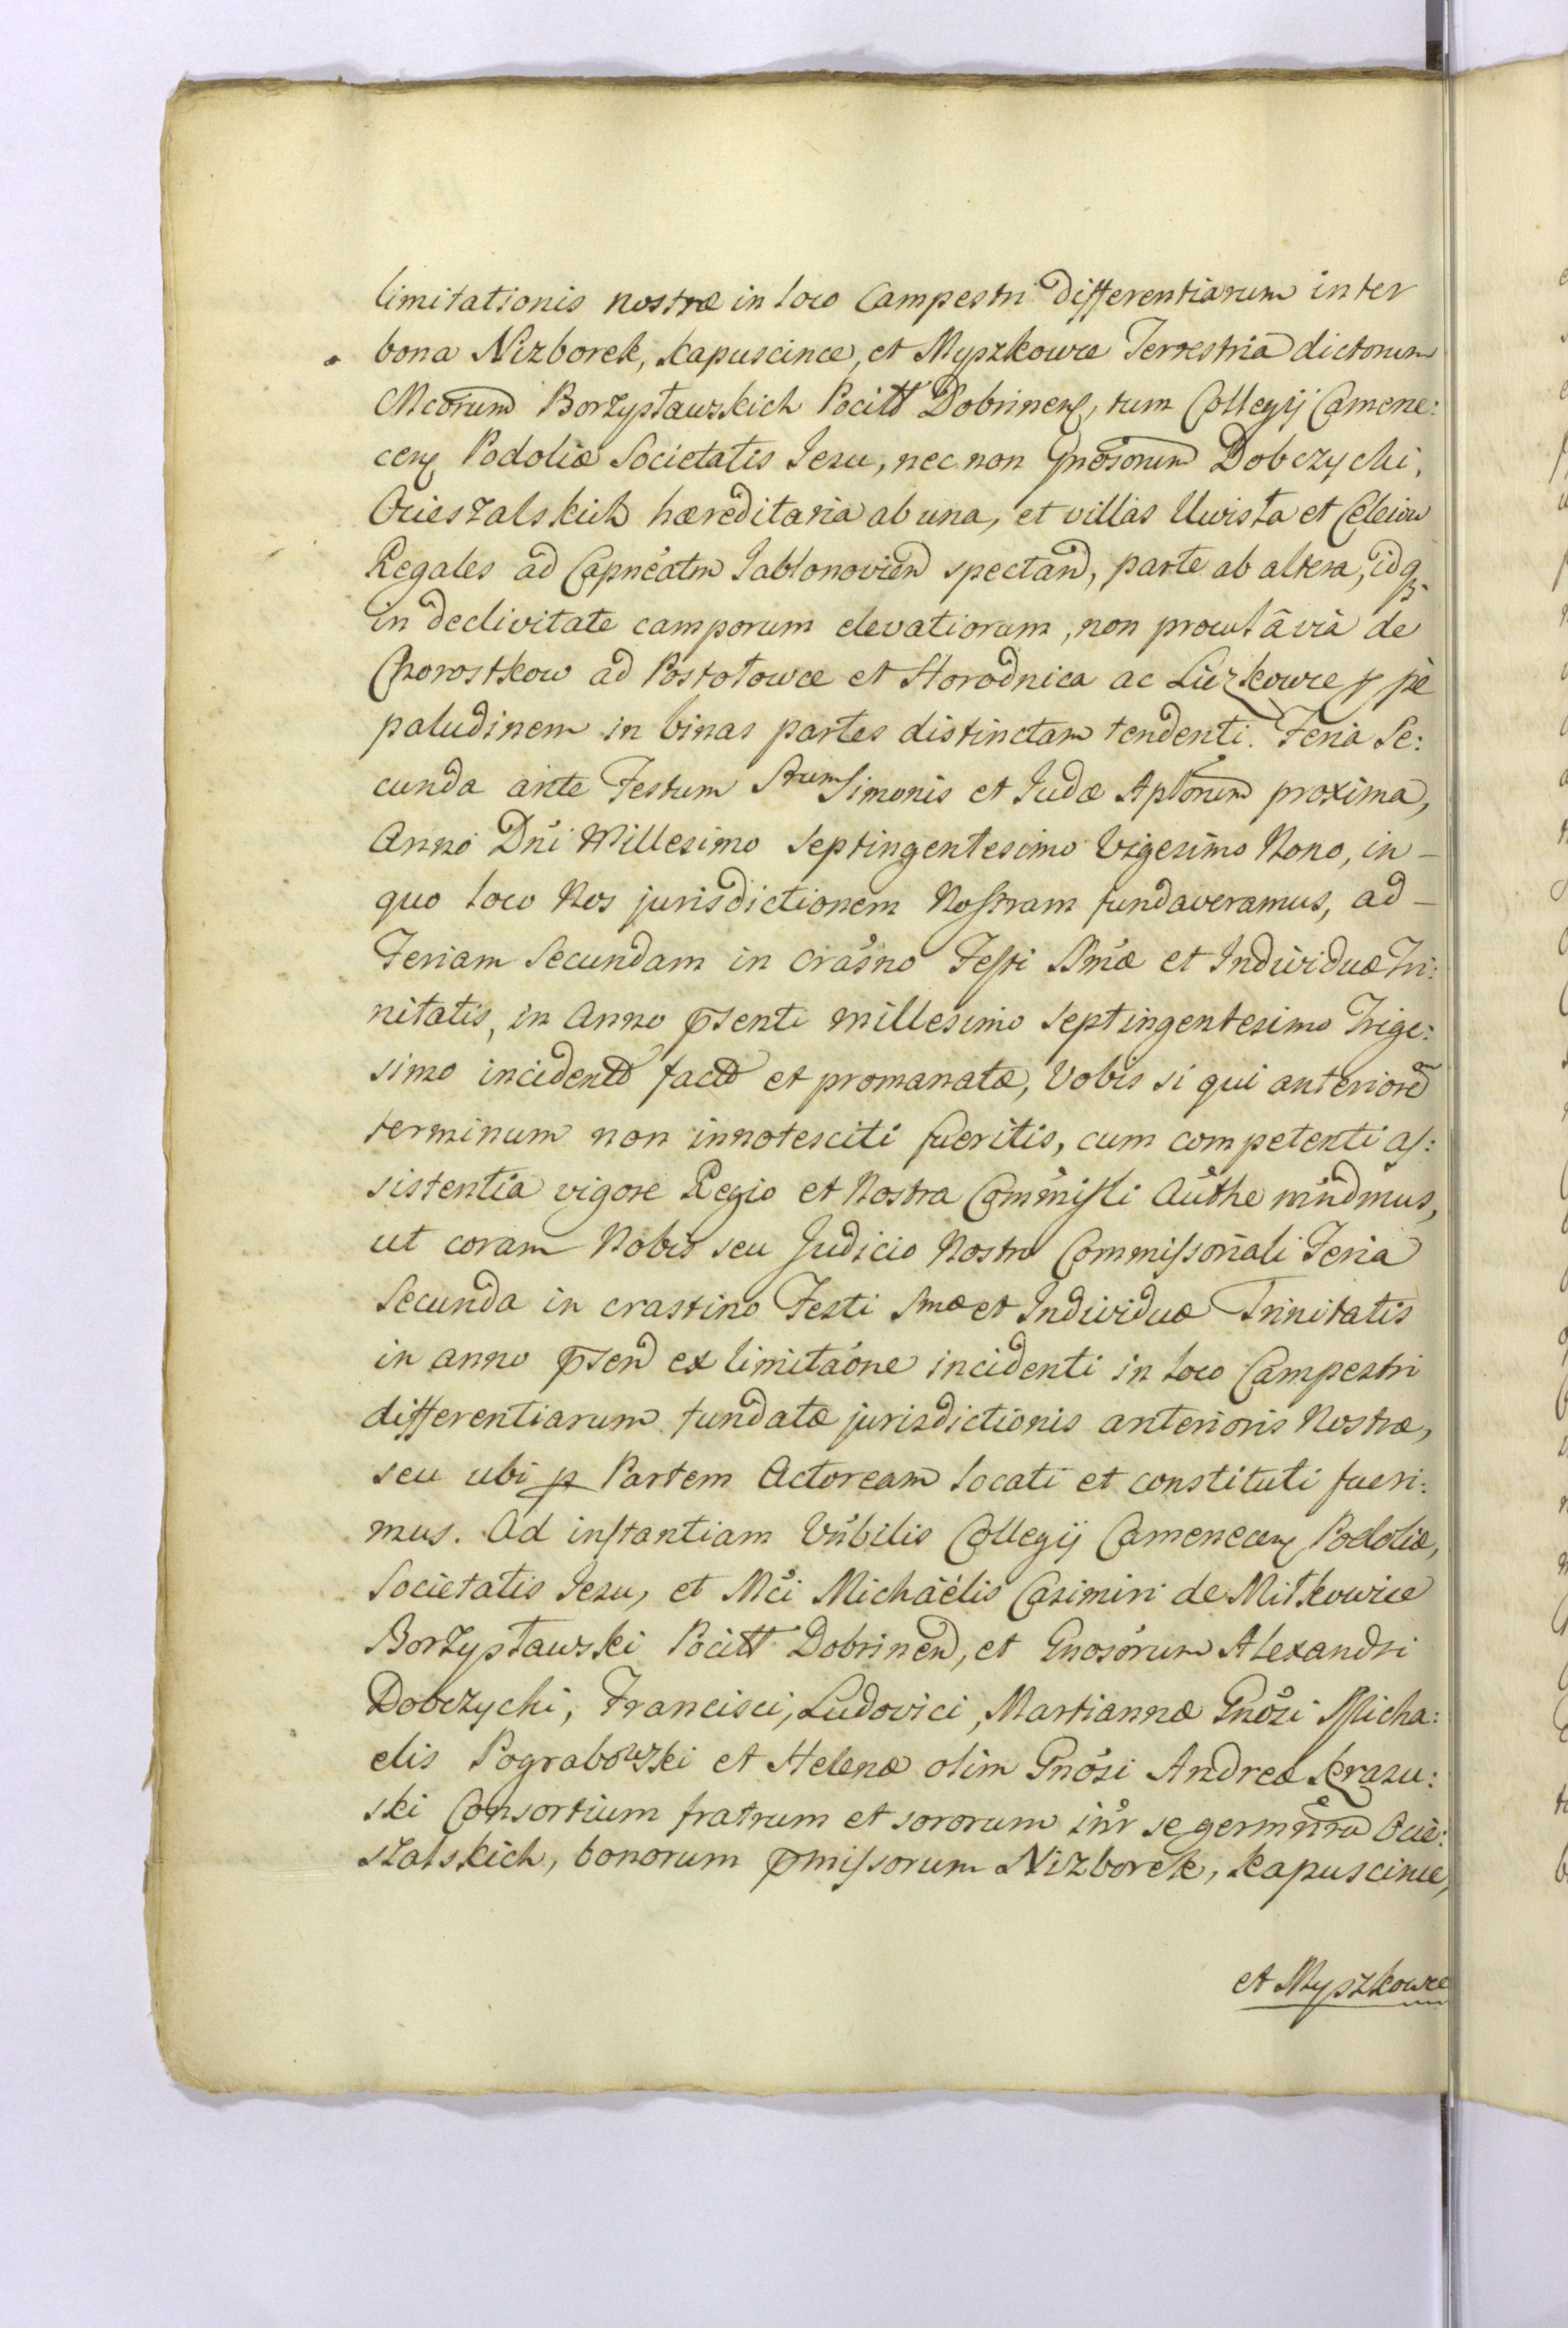 limitationis nostræ in loco Campestri differentiarum inter
bona Nizborek, Kapuscince, et Myszkowce Terrestria dictorum
Mcorum Borzysławskich Pocill Dobrinen, tum Collegij Camene:
cen Podoliæ Societatis Jesu, nec non Gnosorum Dobczychi,
Ocieszalskich hæreditaria ab una, et villas Uwista et Celeiow
Regales ad Capneatm Jablonovien spectand, parte ab altera, idq
in declivitate camporum elevatiorum, non procul â viâ de
Chorostkow ad Postołowce et Horodnica ac Liczkowce p pè
paludinem in binas partes distinctam tendenti. Feria Se:
cunda ante Festum Strum Simonis et Judæ Aplorum proxima,
Anno Dni Millesimo Septingentesimo Vigesimo Nono, in –
quo loco Nos jurisdictionem Nostram fundaveramus, ad –
Feriam Secundam in crasno Festi Smæ et Individuæ Tri:
nitatis, in Anno psenti millesimo Septingentesimo Trige:
simo incident fact et promanatæ, Vobis si qui anteriorem
terminum non innotesciti fueritis, cum competenti as:
sistentia vigore Regio et Nostra Commissli Authe mndmus,
ut coram Nobis seu Judicio Nostro Commissoriali Feria
Secunda in crastino Festi Smæ et Individuæ Trinitatis
in anno psen ex limitaone incidenti in loco Campestri
differentiarum fundatæ jurisdictionis anterioris Nostræ,
seu ubi p Partem Actoream locati et constituti fueri:
mus. Ad instantiam Vnbilis Collegij Camenecen Podoliæ,
Societatis Jesu, et Mci Michaëlis Casimiri de Mitkowice
Borzysławski Pocill Dobrinen, et Gnosorum Alexandri
Dobczychi, Francisci, Ludovici, Martiannæ Gnosi Micha:
elis Pograbowski et Helenæ olim Gnosi Andreæ Krasu:
ski Consortium fratrum et sororum inr se germnru Ocie:
szalskich, bonorum pmissorum Nizborek, Kapuscince,
et Myszkowce